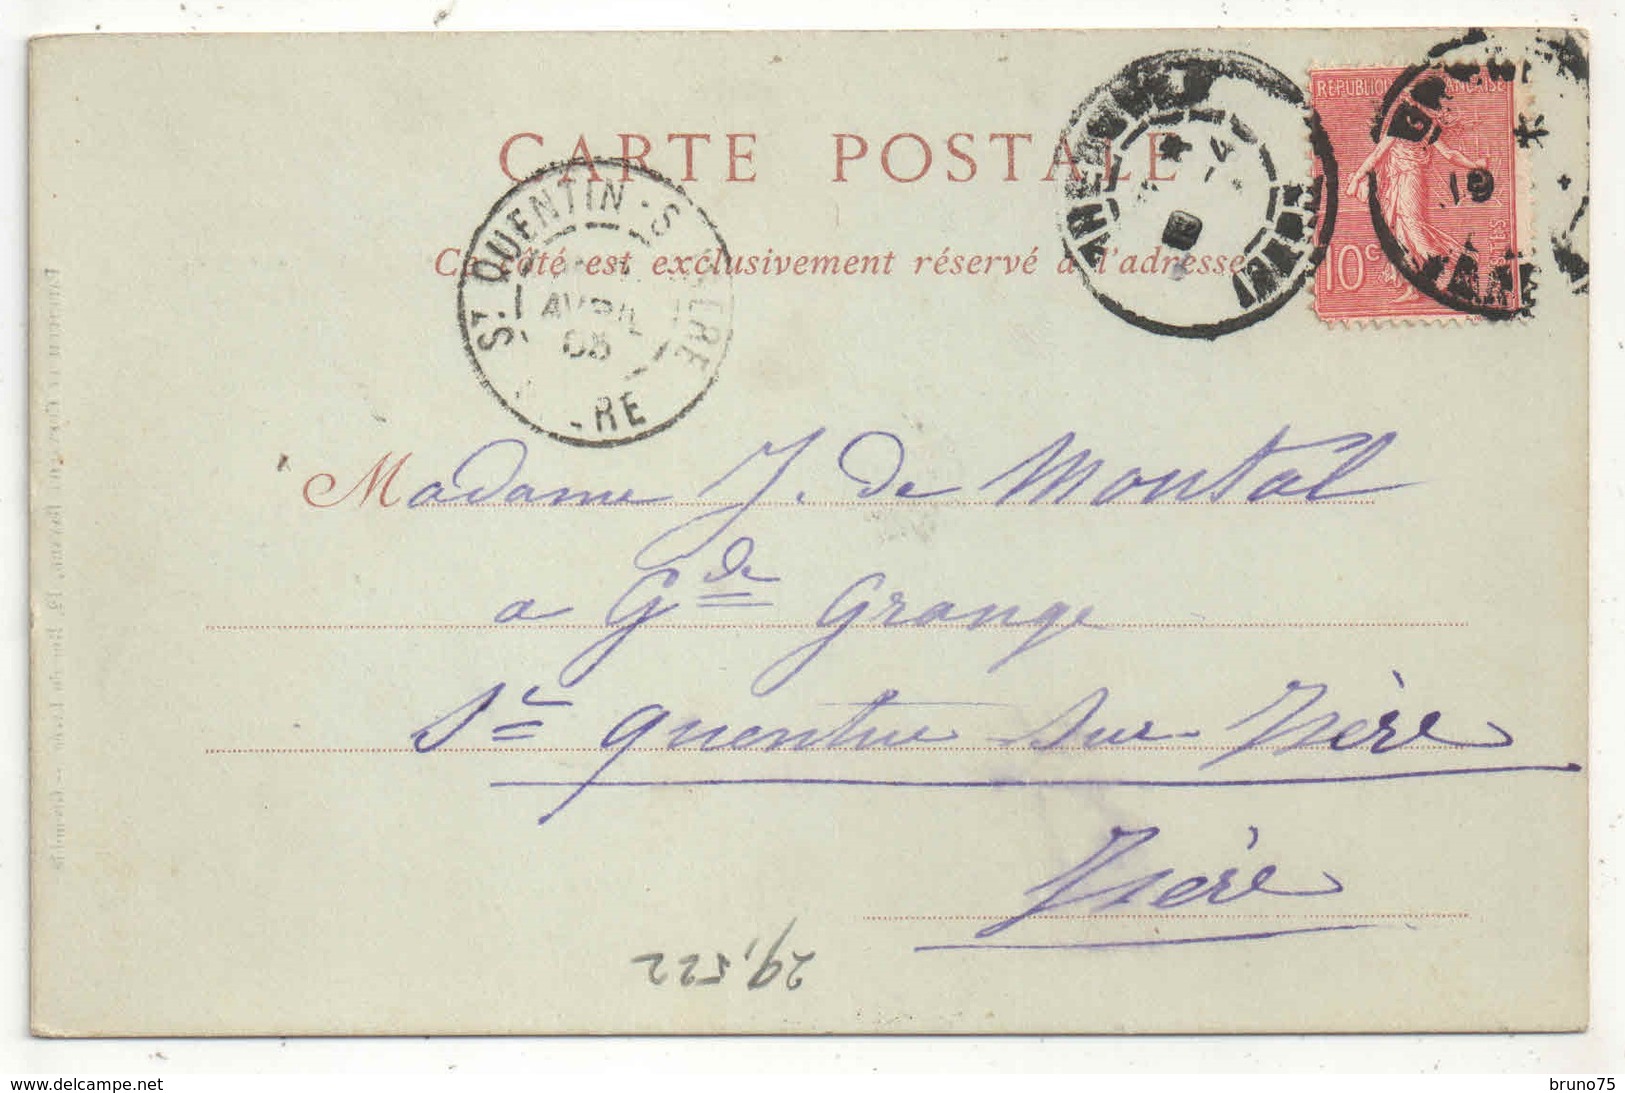 CARTE POSTALE
Ce côté est exclusivement réservé à l'adresse
RÉPUBLIQUE FRANÇAISE
10c
POSTES
ST QUENTIN-S-ISERE
AVRIL
05
Madame J. de Montal
a Gde Grange
St quentin sur Isère
Isère
29,522
www.delcampe.net
bruno75